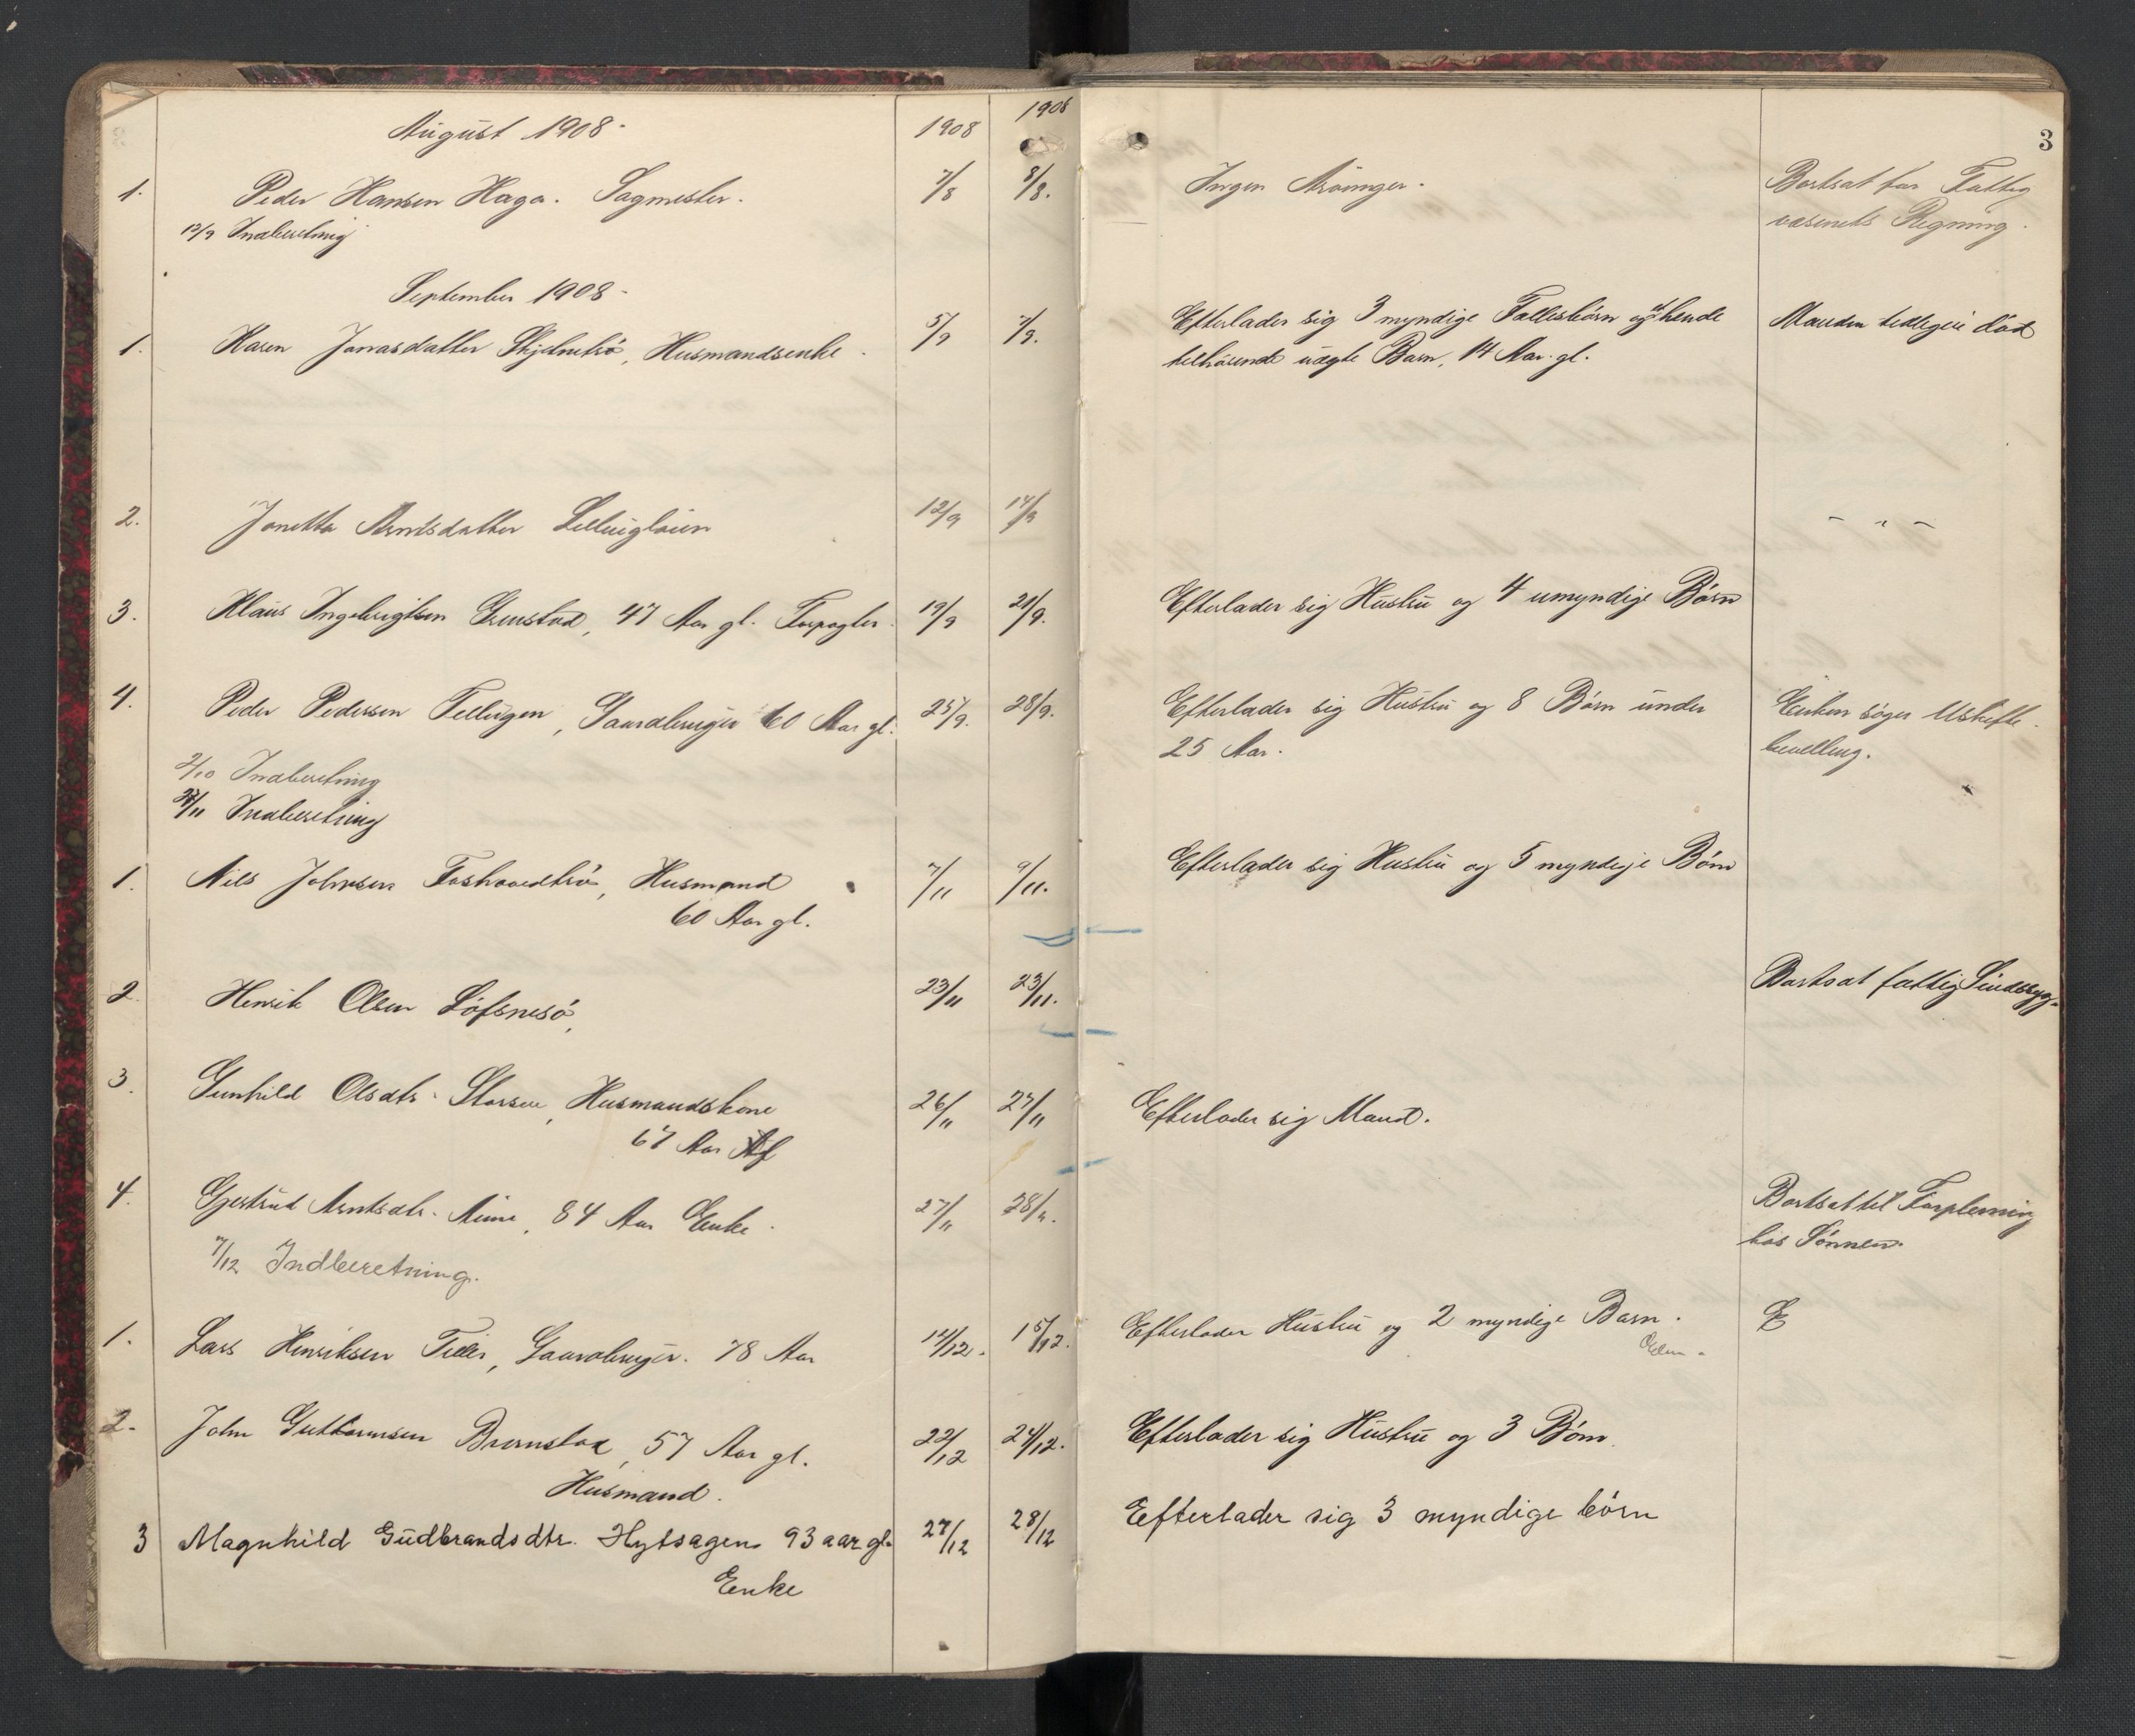 3
August 1908 1908 1908
1. Peder Hansen Haga. Sagmester. 7/8 8/8. Ingen Arvinger. Bortsat for Fattig
12/9 Indberetning væsenets Regning.
September 1908
1. Karen Jonasdatter Skjelnesö, Husmandsenke. 5/9 7/9. Efterlader sig 3 myndige Fællesbörn og et hende Manden tidligere död
tilhörende uægte Barn, 14 Aar gl.
2. Jonetta Arntsdatter 12/9 14/9 - " -
3. Klaus Ingebrigtsen Grenstad, 47 Aar gl. Forpagter. 19/9 21/9. Efterlader sig Hustru og 4 umyndige Börn
4. Peder Pedersen Tellugen, Gaardbruger 60 Aar gl. 25/9. 28/9. Efterlader sig Hustru og 8 Börn under Enken söger Uskifte
25 Aar. bevilling.
2/10 Indberetning
Indberetning
1. Nils Johnsen, Husmand 7/11 9/11. Efterlader sig Hustru og 5 myndige Börn
60 Aar gl.
2. Henrik Olsen Löfsnesö, 23/11 23/11. Bortsat fattig Sindssyg.
3. Gunhild Olsdtr. Storsve, Husmandskone 26/11 27/11 Efterlader sig Mand.
67 Aar
4. Gjertrud Arntsdtr. Aune, 84 Aar Enke. 27/11 28/11. Bortsat til Forpleining
hos Sönnen.
7/12 Indberetning.
1. Lars Henriksen Tiller, Gaardbruger. 78 Aar 14/12. 15/12. Efterlader Hustru og 2 myndige Barn. E
2. John Guttormsen Bromstad, 57 Aar gl. 22/12 24/12. Efterlader sig Hustru og 3 Börn.
Husmand.
3 Magnhild Gudbrandsdtr. Hytsagen 93 aar gl. 27/12 28/12 Efterlader sig 3 myndige börn
Enke